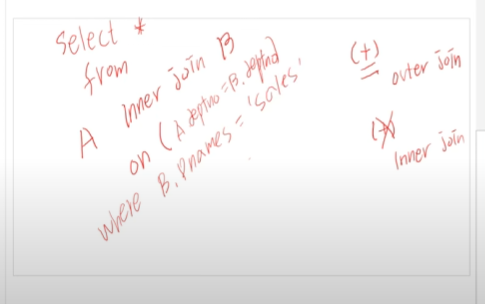 Select *
from
A Inner join B
on (A deptno = B. deptno)
where B. dnames = 'sales'
(+)
outer join
(+)
Inner join